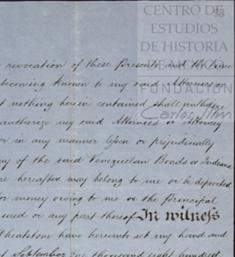 CENTRO DE
ESTUDIOS
DE HISTORIA
revocation of these Presents and the same
becoming known to my said Attorneys or
nothing herein contained shall
authorize my said Attornies or Attorney
or in any manner Upon or prejudicially
of the said Venezuelan Bonds or
hereafter may belong to me or be deposited
or money owing to me or the Principal
or any part thereof In witness
have hereunto set my hand and
September one thousand eight hundred
FUNDACIÓN
Carlos Slim